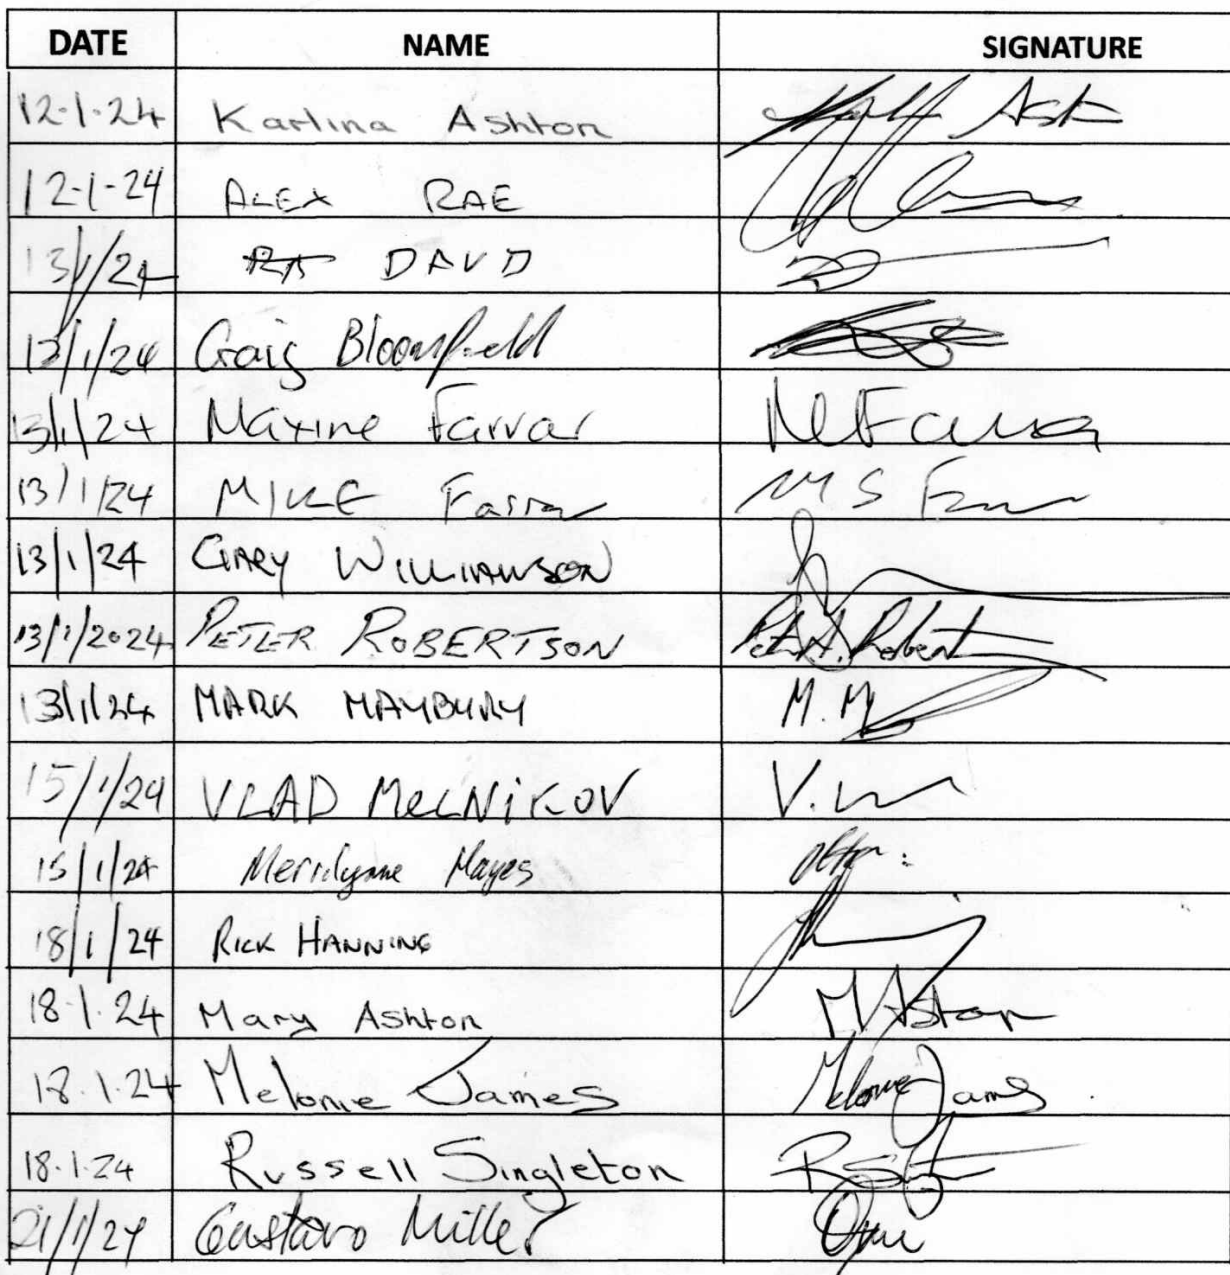 DATE NAME SIGNATURE
12-1-24 Karlina Ashton
12-1-24 ALEX RAE
13/1/24 DAVD
13/1/24 Craig Bloomfield
13/1/24 Maxine Farrar
13/1/24 MIKE Farrar M S
13/1/24 GARY WILLIAMSON
13/1/2024 PETER ROBERTSON Peter A. Robert
13/1/24 MARK MAYBURY M. M
15/1/24 VLAD MELNiKOV V.
15/1/24 Merrilynne Mayes
18/1/24 RICK HANNING
18.1.24 Mary Ashton M Ashton
18.1.24 Melonie James Melonie James
18.1.24 Russell Singleton
21/1/24 Gustavo Miller